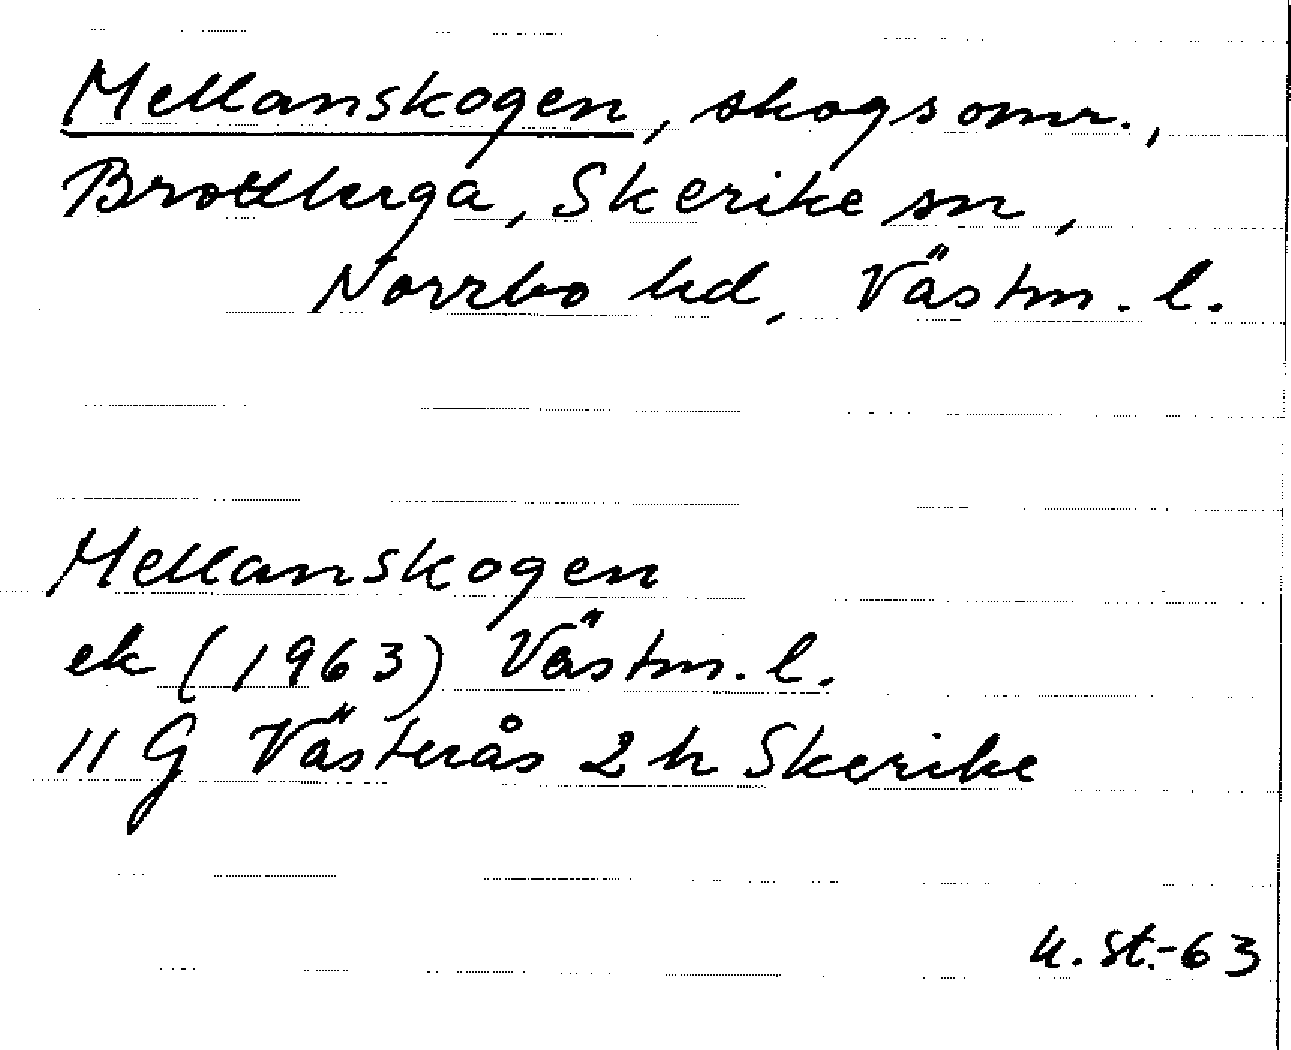 Mellanskogen, skogsomr.,
Brottberga, Skerike sn,
Norrbo hd, Västm. l.
Mellanskogen
ek (1963) Västm. l.
11 G Västerås 2 h Skerike
K. St.-63